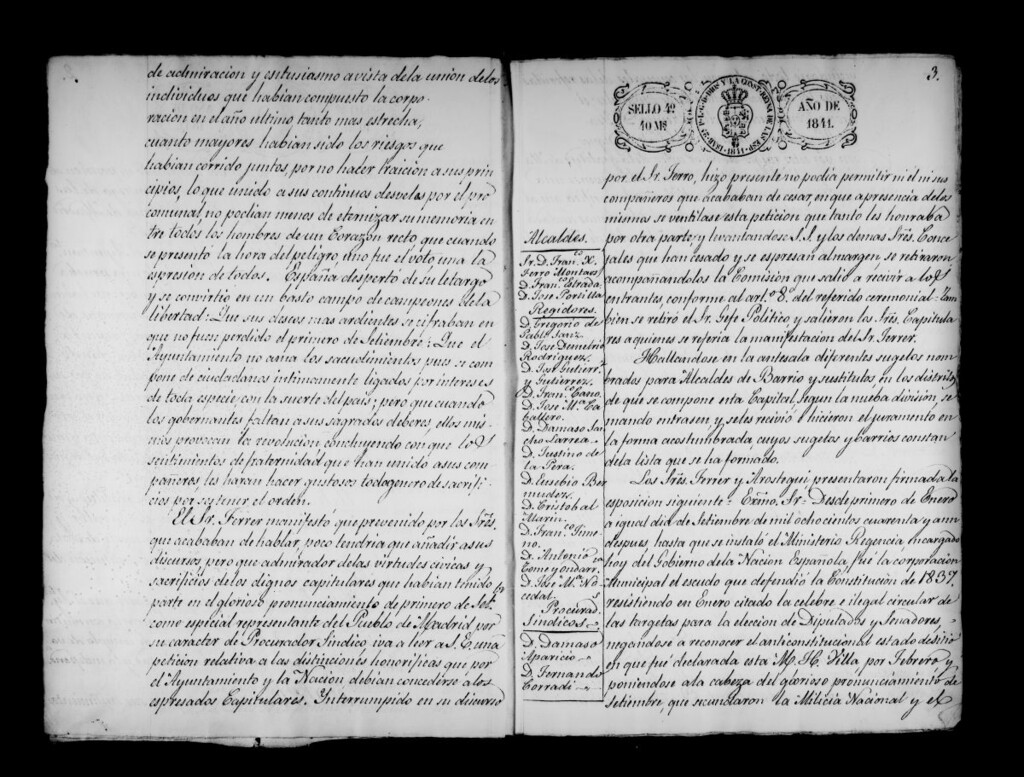 de admiracion y entusiasmo a vista dela union delos
individuos que habian compuesto la corpo-
racion en el año ultimo tanto mas estrecha,
cuanto mayores habian sido los riesgos que
habian corrido juntos, por no hacer traicion a sus prin
cipios, lo que unido a sus continuos desvelos por el pro
comunal, no podian menos de eternizar su memoria en
tre todos los hombres de un Corazon recto que cuando
se presentó la hora del peligro, uno fue el voto una la
espresion de todos. España despertó de su letargo
y se convirtio en un basto campo de campeones dela
libertad: Que sus deseos mas ardientes se cifraban en
que no fuese perdido el primero de Setiembre: Que el
Ayuntamiento no ansia los sacudimientos pues se com
pone de ciudadanos intimamente ligados por intereses
de toda especie, con la suerte del pais; pero que cuando
los gobernantes faltan a sus sagrados deberes, ellos mis-
mos provocan la revolucion concluyendo con que los
sentimientos de fraternidad que han unido a sus com
pañeros, les haran hacer gustosos todo genero de sacrifi-
cios por sostener el orden.
El Sr. Ferrer manifestó que prevenido por los Sres.
que acababan de hablar, poco tendria que añadir a sus
discursos pero que admirador de las virtudes civicas y
sacrificios de los dignos capitulares que habian tenido
parte en el glorioso pronunciamiento de primero de Set.
como especial representante del Pueblo de Madrid por
su caracter de Procurador Sindico iva a leer a S. E. una
peticion relativa a las distinciones honorificas que por
el Ayuntamiento y la Nacion debian concederse a los
espresados Capitulares. Interrumpido en su discurso
3.
SELLO 4º
40 Ms
AÑO DE
1841.
por el Sr. Ferro, hizo presente no podia permitir ni el ni sus
compañeros que acababan de cesar, en que a presencia delos
mismos se ventilase esta peticion que tanto les honraba
por otra parte, y levantandose S.S. y los demas Sres. Conce-
jales que han cesado y se espresan al margen, se retiraron
acompañandolos la Comision que salió a recivir a los
entrantes, conforme al arto. 8º del referido ceremonial= Tam
bien se retiró el Sr. Gefe Politico y salieron los Sres. Capitula
res a quienes se referia la manifestacion del Sr. Ferrer.
Hallandose en la antesala diferentes sugetos nom
brados para Alcaldes de Barrio y sustitutos, en los distritos
de que se compone esta Capital, segun la nueba division, se
mando entrasen, y se les recivió e hicieron el juramento en
la forma acostumbrada cuyos sugetos y barrios constan
dela lista que se ha formado.
Los Sres. Ferrer y Arostegui presentaron firmada la
esposicion siguiente= Exmo. Sr.= Desde primero de Enero
a igual dia de Setiembre de mil ochocientos cuarenta y aun
despues hasta que se instaló el Ministerio Regencia encargado
hoy del Gobierno dela Nacion Española, fue la corporacion
Municipal el escudo que defendió la Constitucion de 1837
resistiendo en Enero citado la celebre e ilegal circular de
las targetas para la eleccion de Diputados y Senadores,
negandose a reconocer el anticonstitucional estado de sitio
en que fue declarada esta M. H. Villa por Febrero y
poniendose a la cabeza del glorioso pronunciamiento de
Setiembre, que secundaron la Milicia Nacional y el
Alcaldes.
Sr. D. Franco. X.
Ferro Montaos
D. Franco. Estrada
D. Jose Portilla
Regidores.
D. Gregorio de
Pablo Sanz
D. Jose Demetrio
Rodriguez.
D. Jose Gutierr
y Gutierrez.
D. Franco. Cano.
D. Jose Ma. Ca
ballero.
D. Damaso San
cho Larrea.
D. Justino de
la Pera.
D. Eusebio Ber
mudez.
D. Cristobal
Marin.
D. Franco. Jime
no.
D. Antonio
Tomé y ondarr.
D. Jose Ma. No
cedal
Procurad.s
Sindicos.
D. Damaso
Aparicio.
D. Fernando
Corradi.